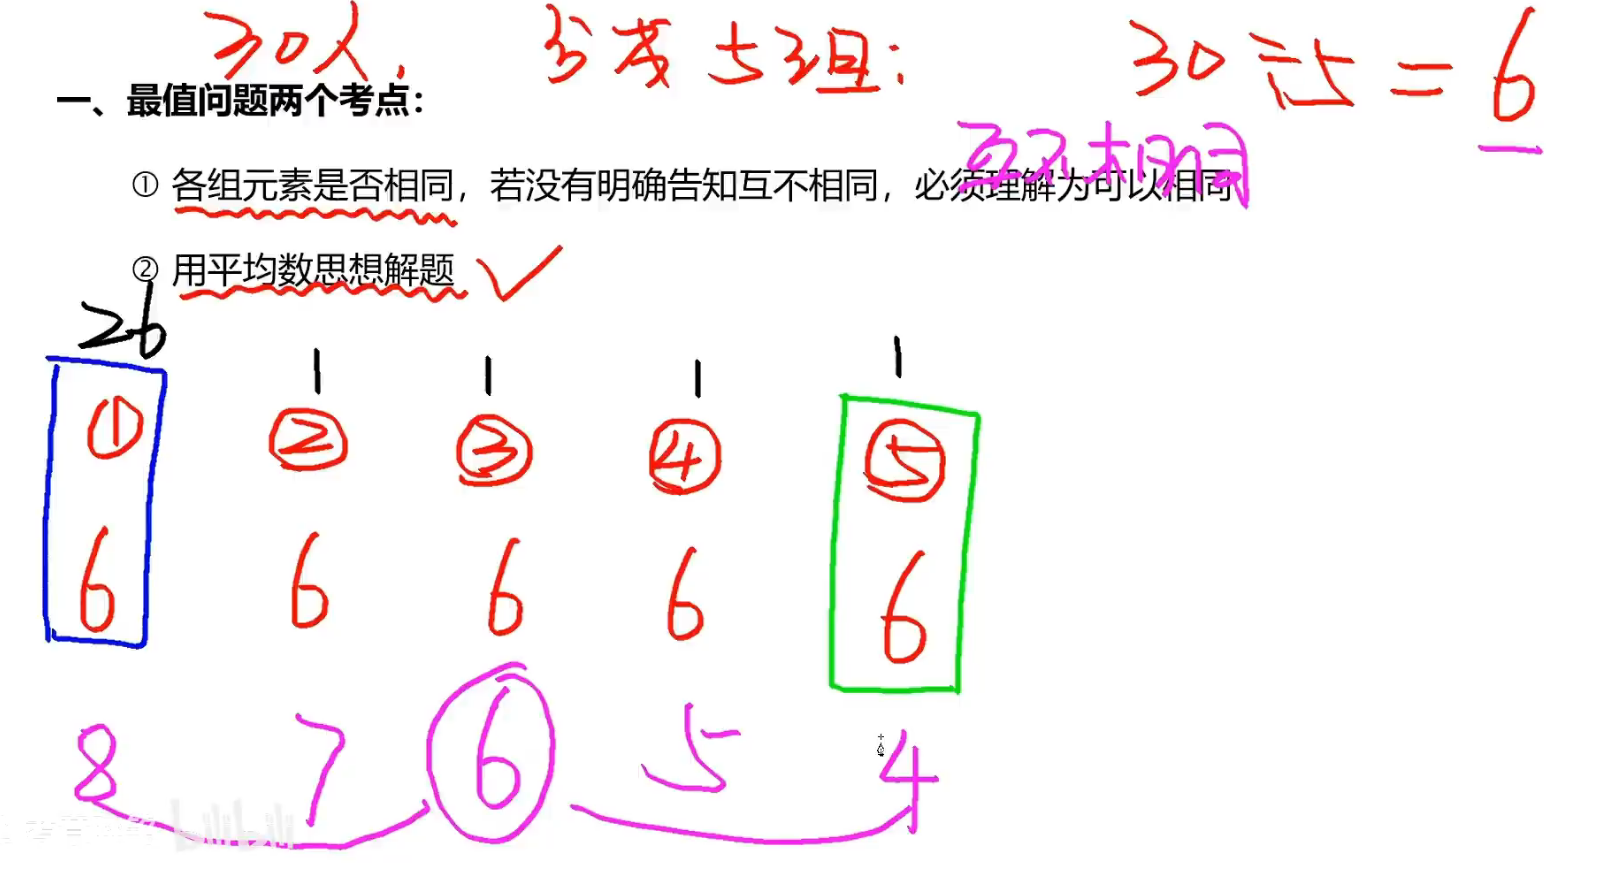 30人, 分成5组: 30÷5=6
一、最值问题两个考点：
互不相同
① 各组元素是否相同，若没有明确告知互不相同，必须理解为可以相同
② 用平均数思想解题
26 1 1 1 1
① ② ③ ④ ⑤
6 6 6 6 6
8 7 6 5 4